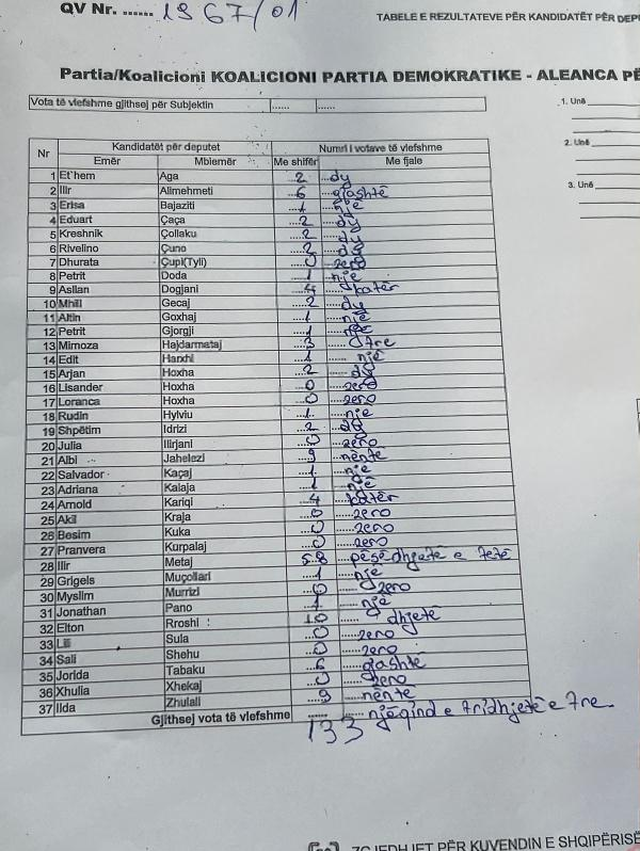 QV Nr. ...... 1967/01
TABELE E REZULTATEVE PËR KANDIDATËT PËR DEPU
Partia/Koalicioni KOALICIONI PARTIA DEMOKRATIKE - ALEANCA PË
Vota të vlefshme gjithsej për Subjektin ...... ......
1. Unë
2. Unë
3. Unë
Nr Kandidatët për deputet Numri i votave të vlefshme
Emër Mbiemër Me shifër Me fjale
1 Et'hem Aga 2 dy
2 Ilir Alimehmeti 6 gjashtë
3 Erisa Bajaziti 1 një
4 Eduart Çaça 2 dy
5 Kreshnik Çollaku 2 dy
6 Rivelino Çuno 2 dy
7 Dhurata Çupi(Tyli) 0 zero
8 Petrit Doda 1 një
9 Asllan Dogjani 4 katër
10 Mhill Gecaj 2 dy
11 Altin Goxhaj 1 një
12 Petrit Gjorgji 1 një
13 Mimoza Hajdarmataj 3 tre
14 Edit Harxhi 1 një
15 Arjan Hoxha 2 dy
16 Lisander Hoxha 0 zero
17 Loranca Hoxha 0 zero
18 Rudin Hylviu 1 një
19 Shpëtim Idrizi 2 dy
20 Julia Ilirjani 0 zero
21 Albi Jahelezi 9 nëntë
22 Salvador Kaçaj 1 një
23 Adriana Kalaja 1 një
24 Arnold Kariqi 4 katër
25 Akil Kraja 0 zero
26 Besim Kuka 0 zero
27 Pranvera Kurpalaj 0 zero
28 Ilir Metaj 58 pësëdhjetë e tetë
29 Grigels Muçollari 1 një
30 Myslim Murrizi 0 zero
31 Jonathan Pano 1 një
32 Elton Rroshi 10 dhjetë
33 Sula 0 zero
34 Sali Shehu 0 zero
35 Jorida Tabaku 6 gjashtë
36 Xhulia Xhekaj 0 zero
37 Ilda Zhulali 9 nëntë
Gjithsej vota të vlefshme ...... 133 ...... njëqind e tridhjetë e tre
ZGJEDHJET PËR KUVENDIN E SHQIPËRISË